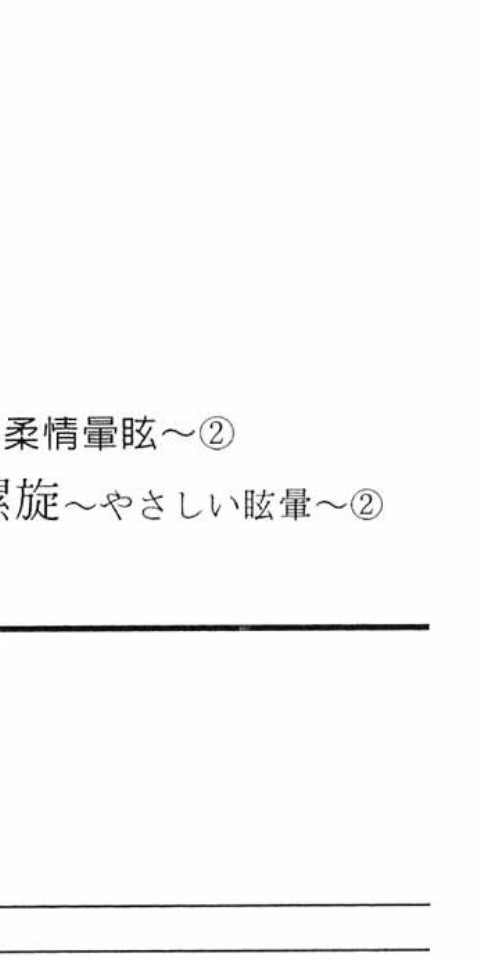 柔情暈眩～②
旋～やさしい眩暈～②